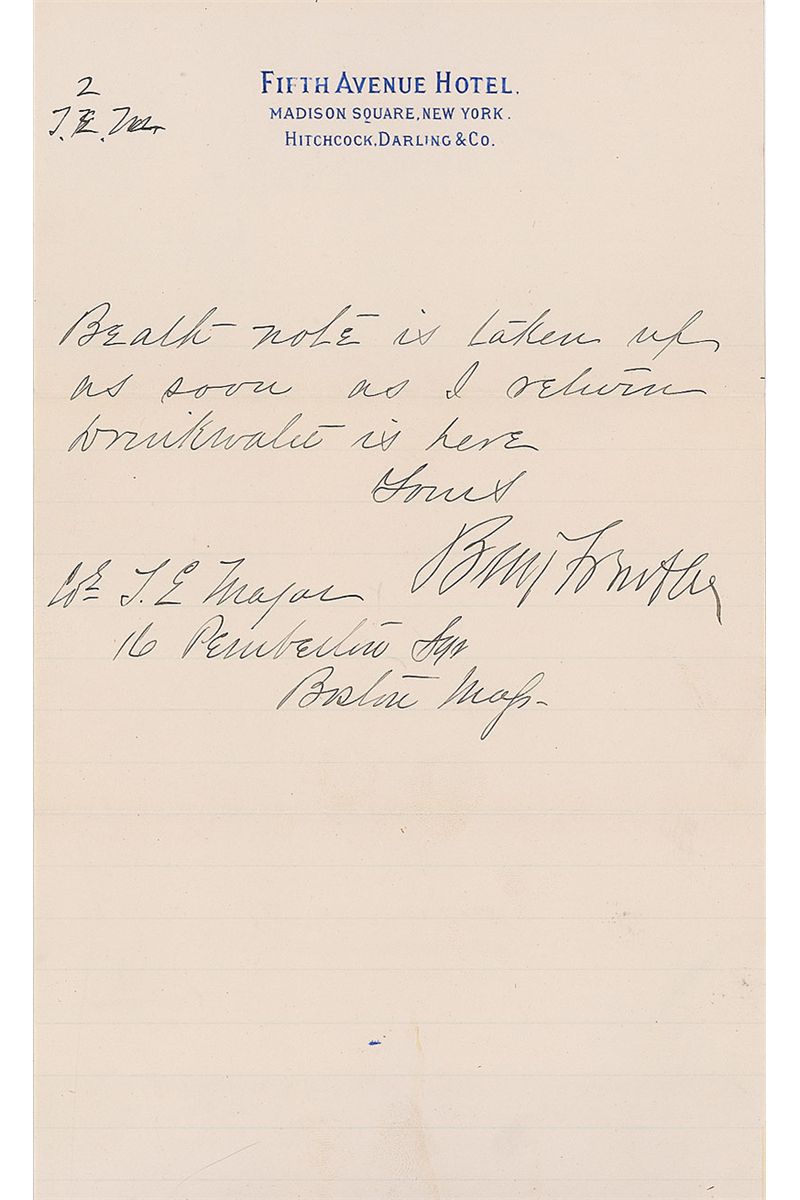 FIFTH AVENUE HOTEL.
MADISON SQUARE, NEW YORK.
HITCHCOCK, DARLING & CO.
2
T.E.M.
note is taken up
as soon as I return
is here
Yours
Benj F Butler
Col T. E Major
16 Pemberton Sqr
Boston Mass-